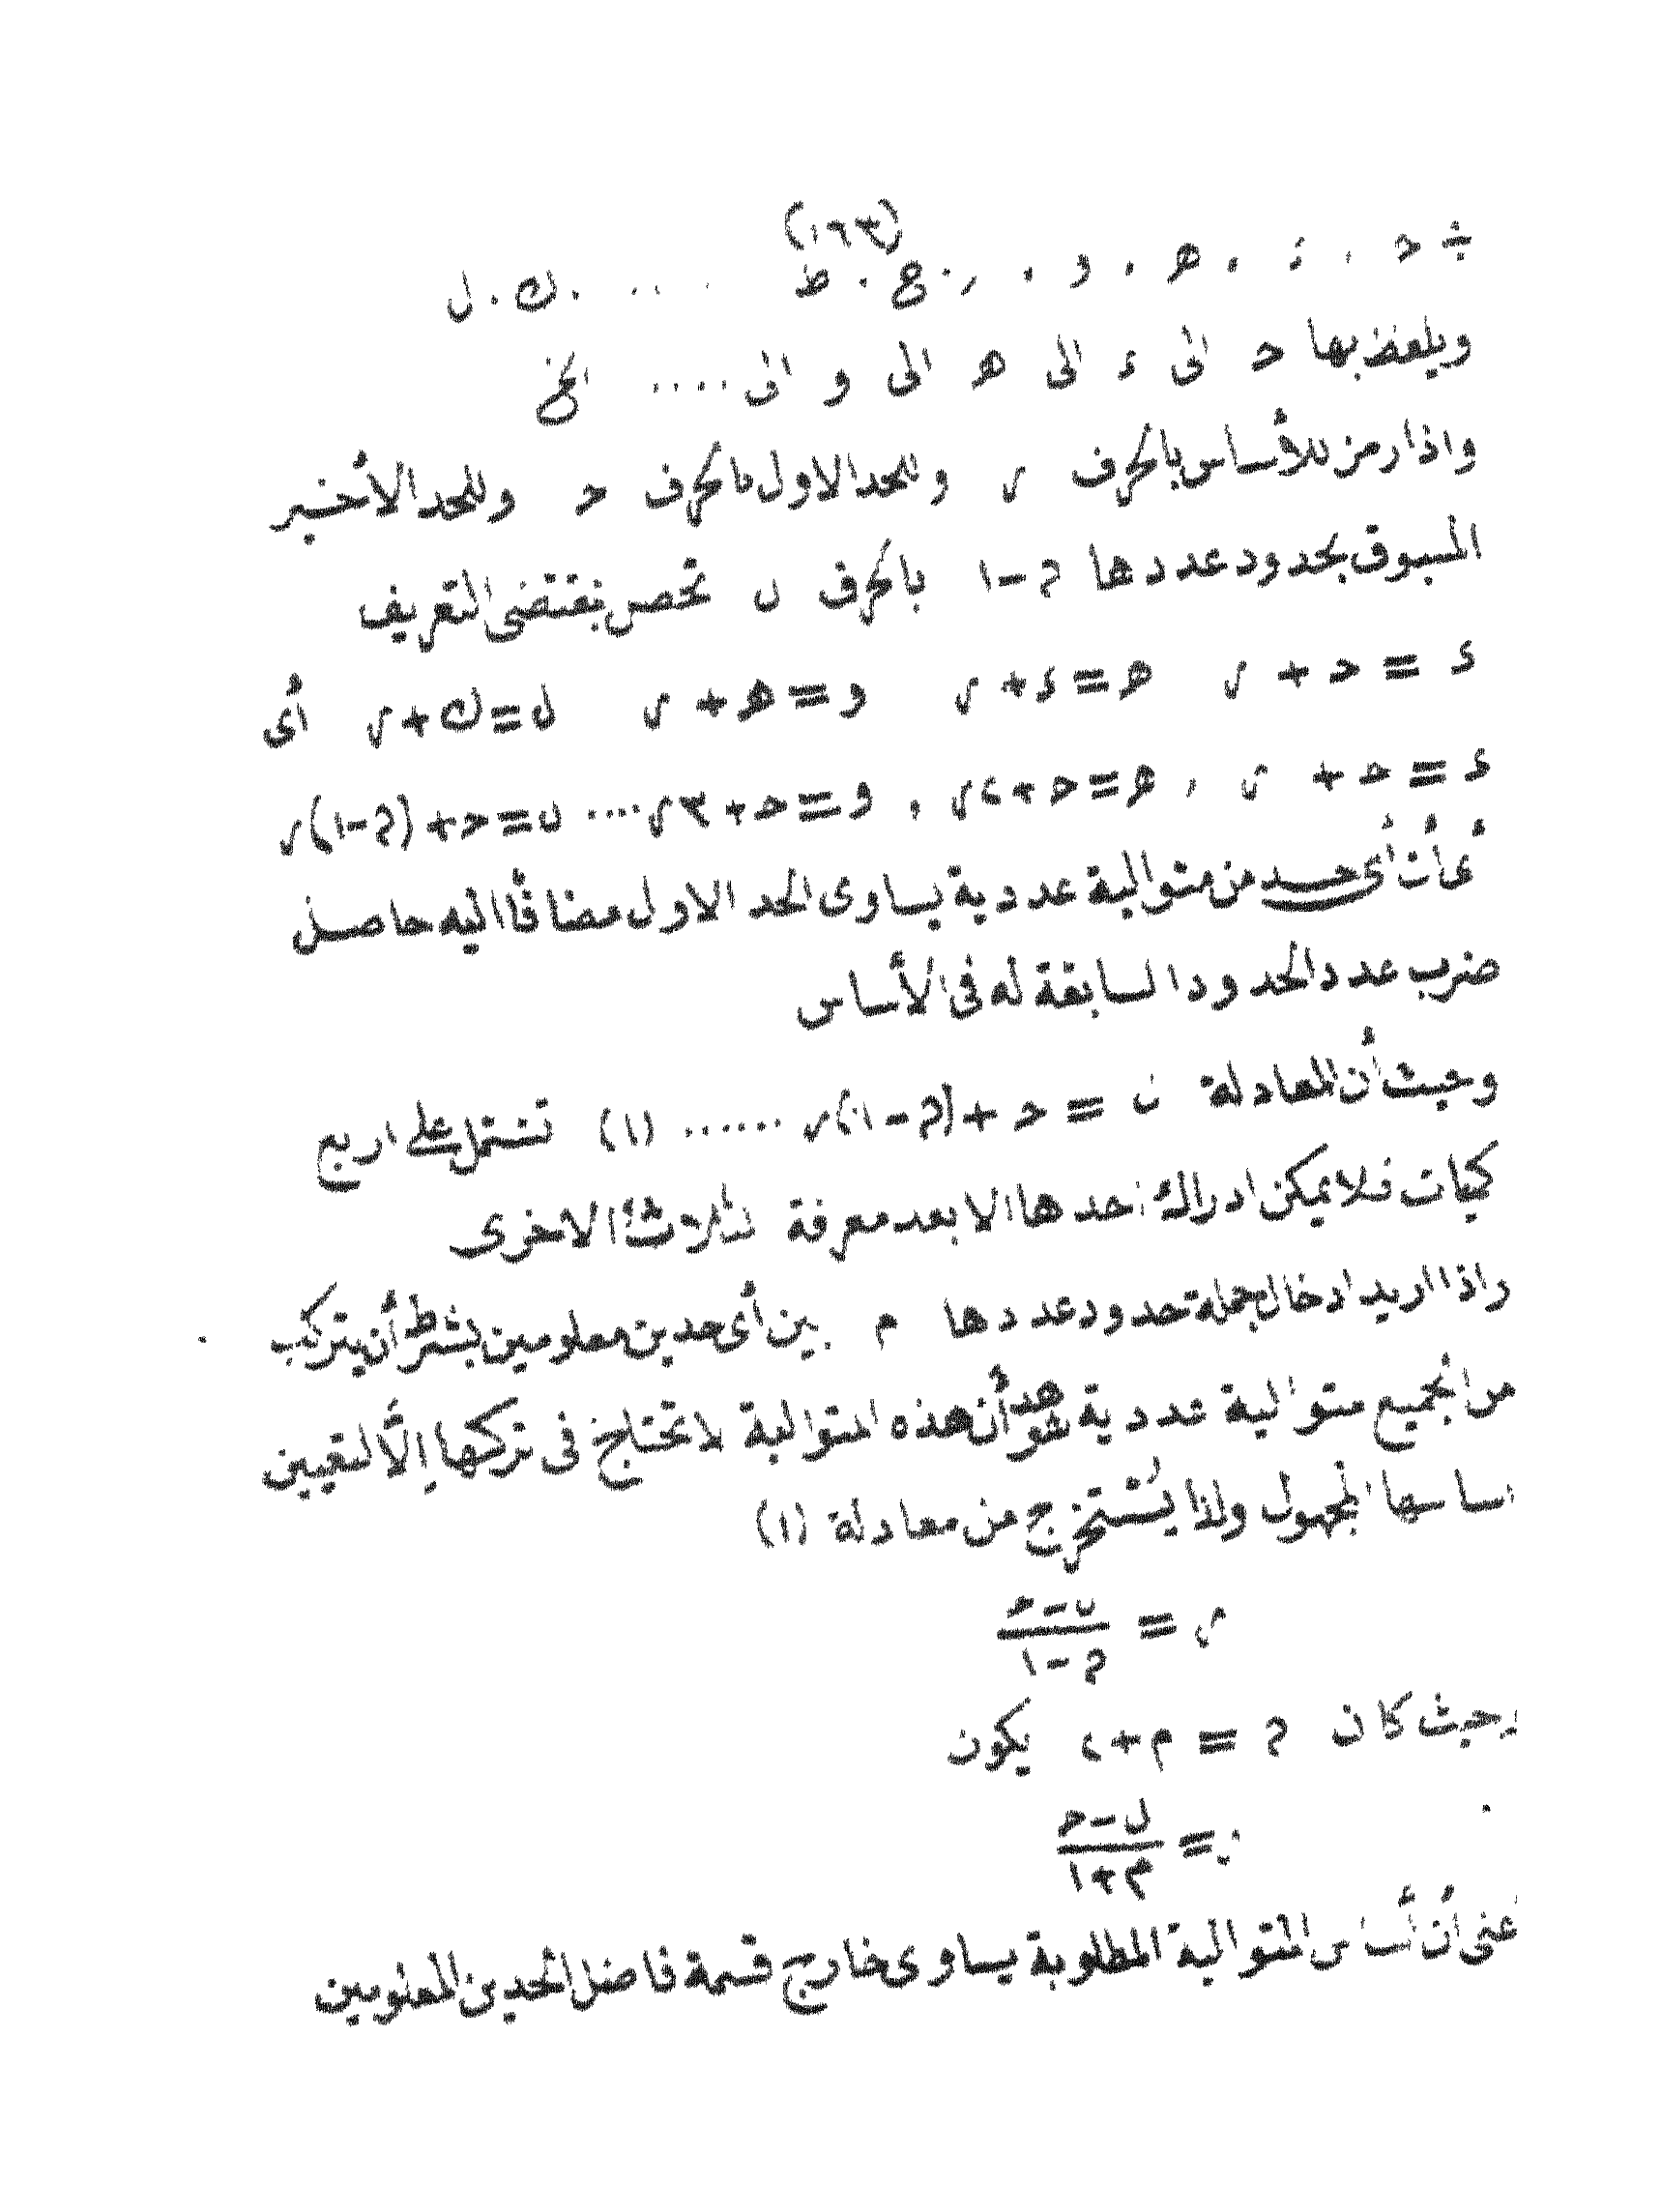 (١٩٣)
÷ ح . د . ه . و . ر . ع . ط .... . ك . ل
ويلفظ بها ح الى د الى ه الى و الى .... الخ
واذا رمز للأساس بالحرف ر وللحد الاول بالحرف ح وللحد الأخير
المسبوق بحدود عددها ۃ-١ بالحرف ل تحصل بمقتضى التعريف
د = ح + ر ه = د + ر و = ه + ر ل = ك + ر أى
د = ح + ر , ه = ح + ٢ر , و = ح + ٣ر .... ل = ح + (ۃ-١)ر
أى أن أى حد من متوالية عددية يساوى الحد الاول مضافا اليه حاصل
ضرب عدد الحدود السابقة له فى الأساس
وحيث أن المعادلة ل = ح + (ۃ-١)ر ...... (١) تشتمل على اربع
كميات فلا يمكن ادراك احدها الا بعد معرفة الثلاث الاخرى
واذا اريد ادخال جملة حدود عددها م بين أى حدين معلومين بشرط أن يتركب
من الجميع متوالية عددية أن هذه المتوالية لا تحتاج فى تركها إلّا لتعيين
اساسها المجهول ولذا يُستخرج من معادلة (١)
ر = (ل-ح)/(ۃ-١)
وحيث كان ۃ = م+٢ يكون
ر = (ل-ح)/(م+١)
أعنى أن أساس المتوالية المطلوبة يساوى خارج قسمة فاضل الحدين المعلومين